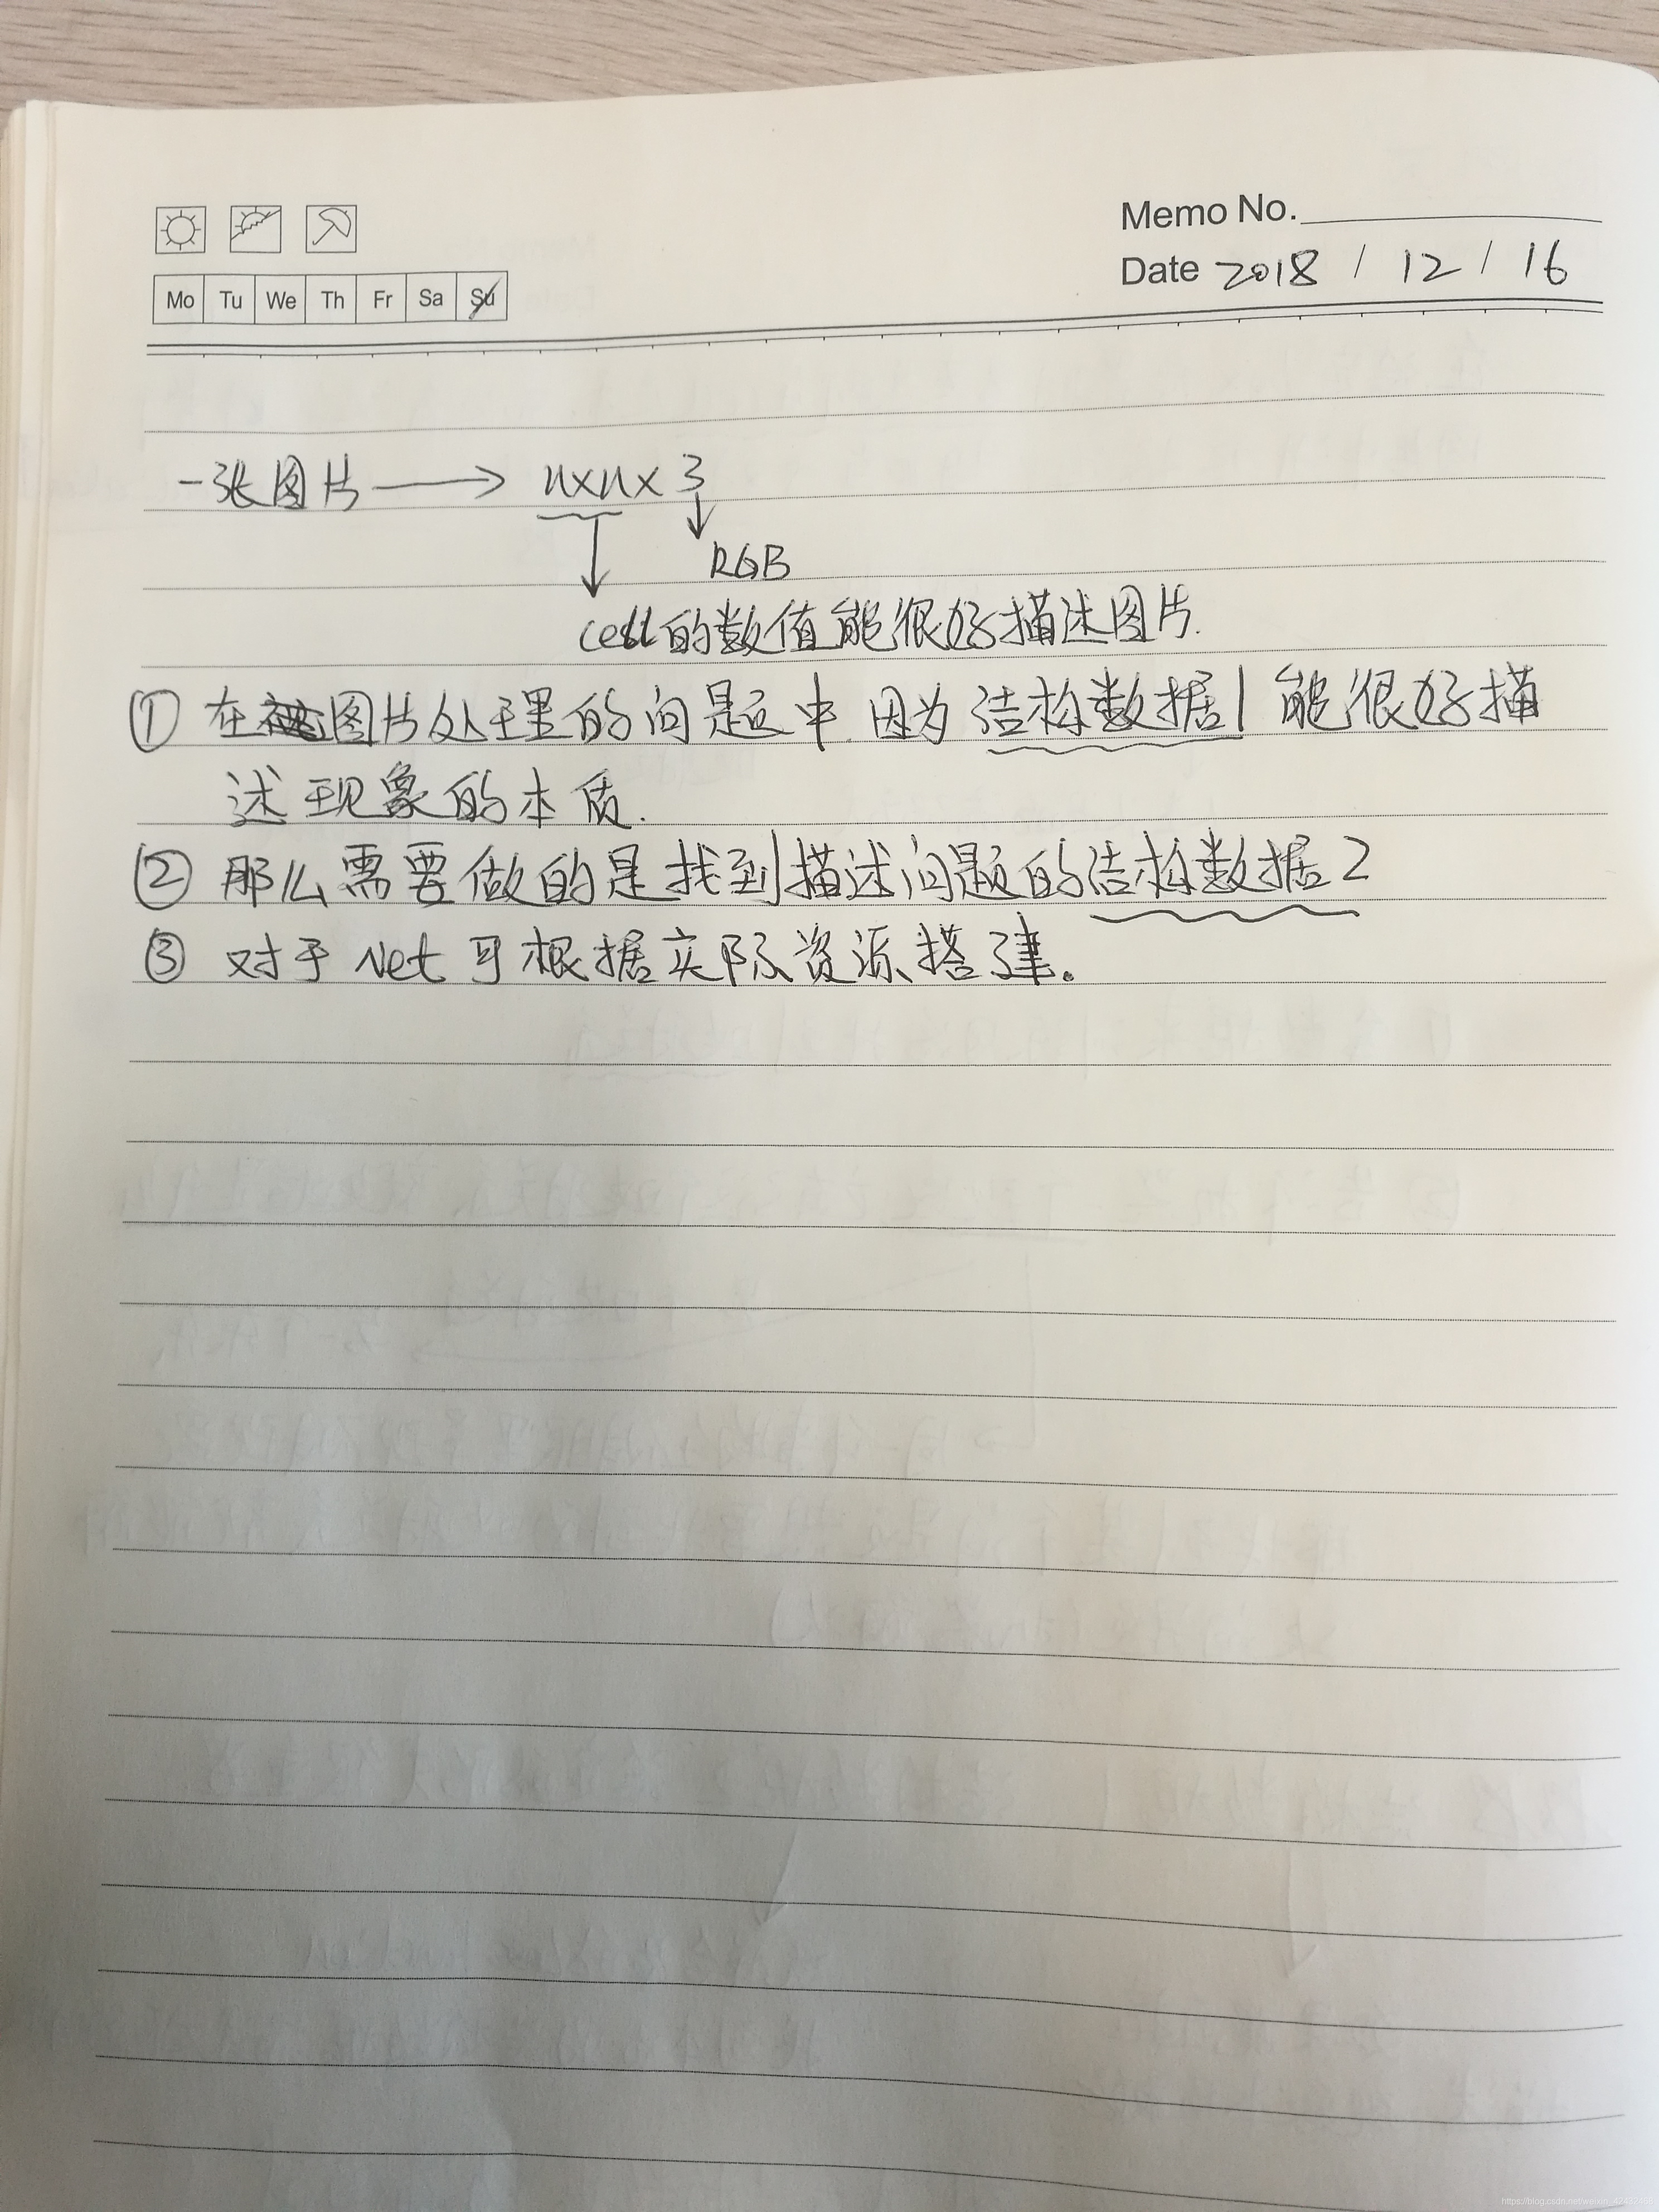 Memo No.
Date 2018 / 12 / 16
Mo Tu We Th Fr Sa Su
一张图片 → n×n×3
RGB
cell的数值能很好描述图片.
① 在图片处理的问题中,因为结构数据1 能很好描
述现象的本质.
② 那么需要做的是找到描述问题的结构数据2
③ 对于 Net 可根据实际资源搭建。